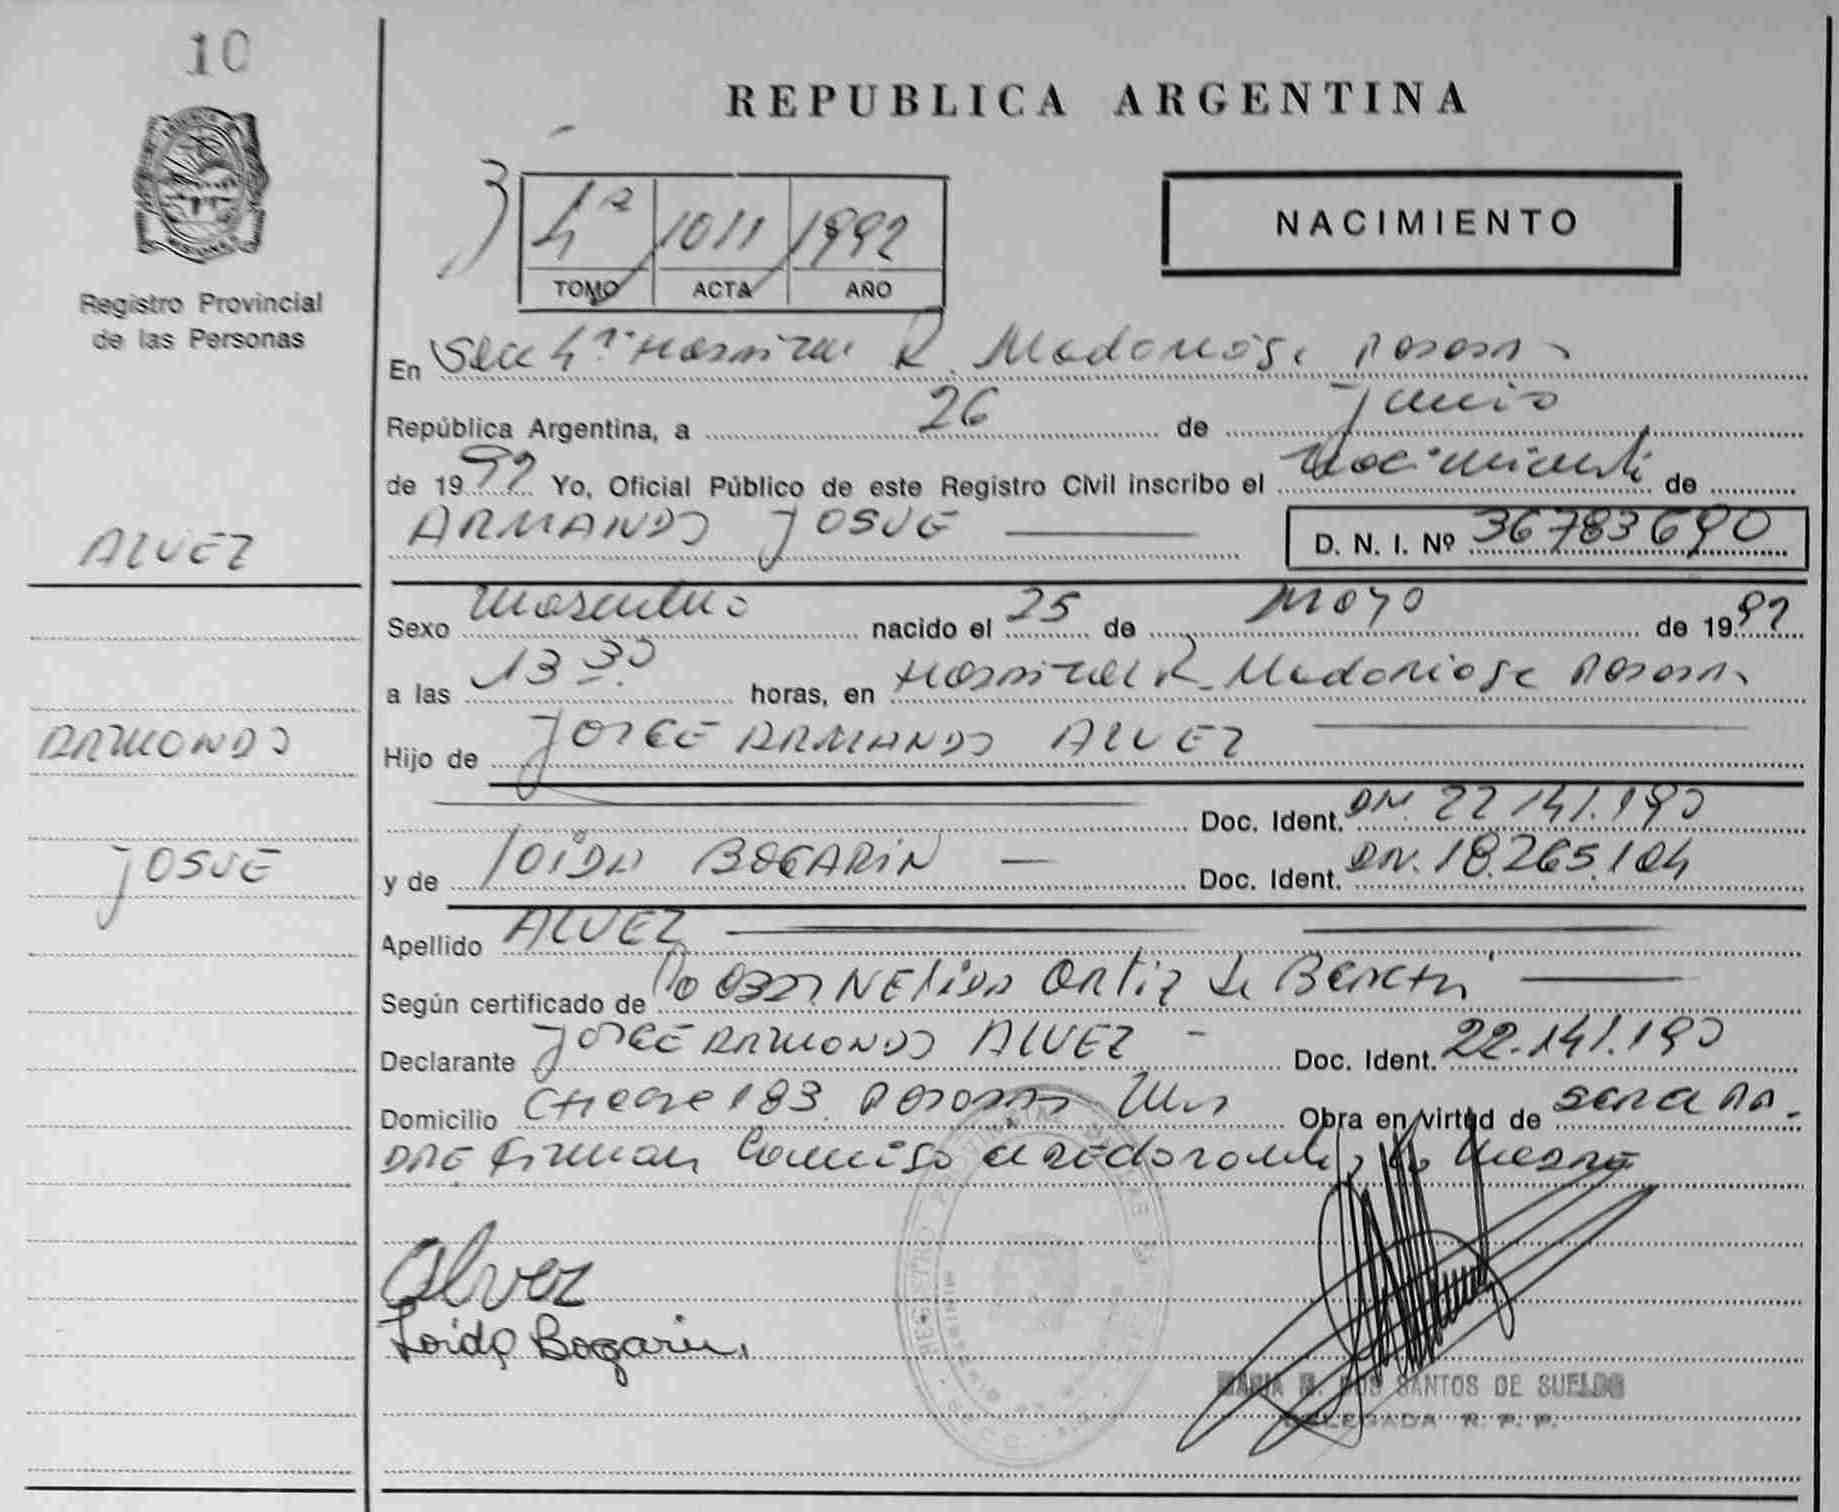 10
REPUBLICA ARGENTINA
4ª 1011 1992
TOMO ACTA AÑO
NACIMIENTO
Registro Provincial
de las Personas
En Secc 4ª Hospital R. Madariaga Posadas
República Argentina, a 26 de Junio
de 1992 Yo, Oficial Público de este Registro Civil inscribo el Nacimiento de
ALVEZ
ARMANDO JOSUE D. N. I. Nº 36783690
Sexo Masculino nacido el 25 de Mayo de 1992
a las 13 30 horas, en Hospital R. Madariaga Posadas
ARMANDO
Hijo de JORGE ARMANDO ALVEZ
Doc. Ident. DN. 22 141.190
JOSUE
y de LOIDA BOGARIN Doc. Ident. DN. 18.265.104
Apellido ALVEZ
Según certificado de NELIDA Ortiz de
Declarante JORGE ARMANDO ALVEZ Doc. Ident. 22.141.190
Domicilio 183 Posadas Mns Obra en virtud de ser el PA-
DRE firman
Alvez
Loida Bogarin
REGISTRO
MARIA DOS SANTOS DE SUELDO
DELEGADA R. P. P.